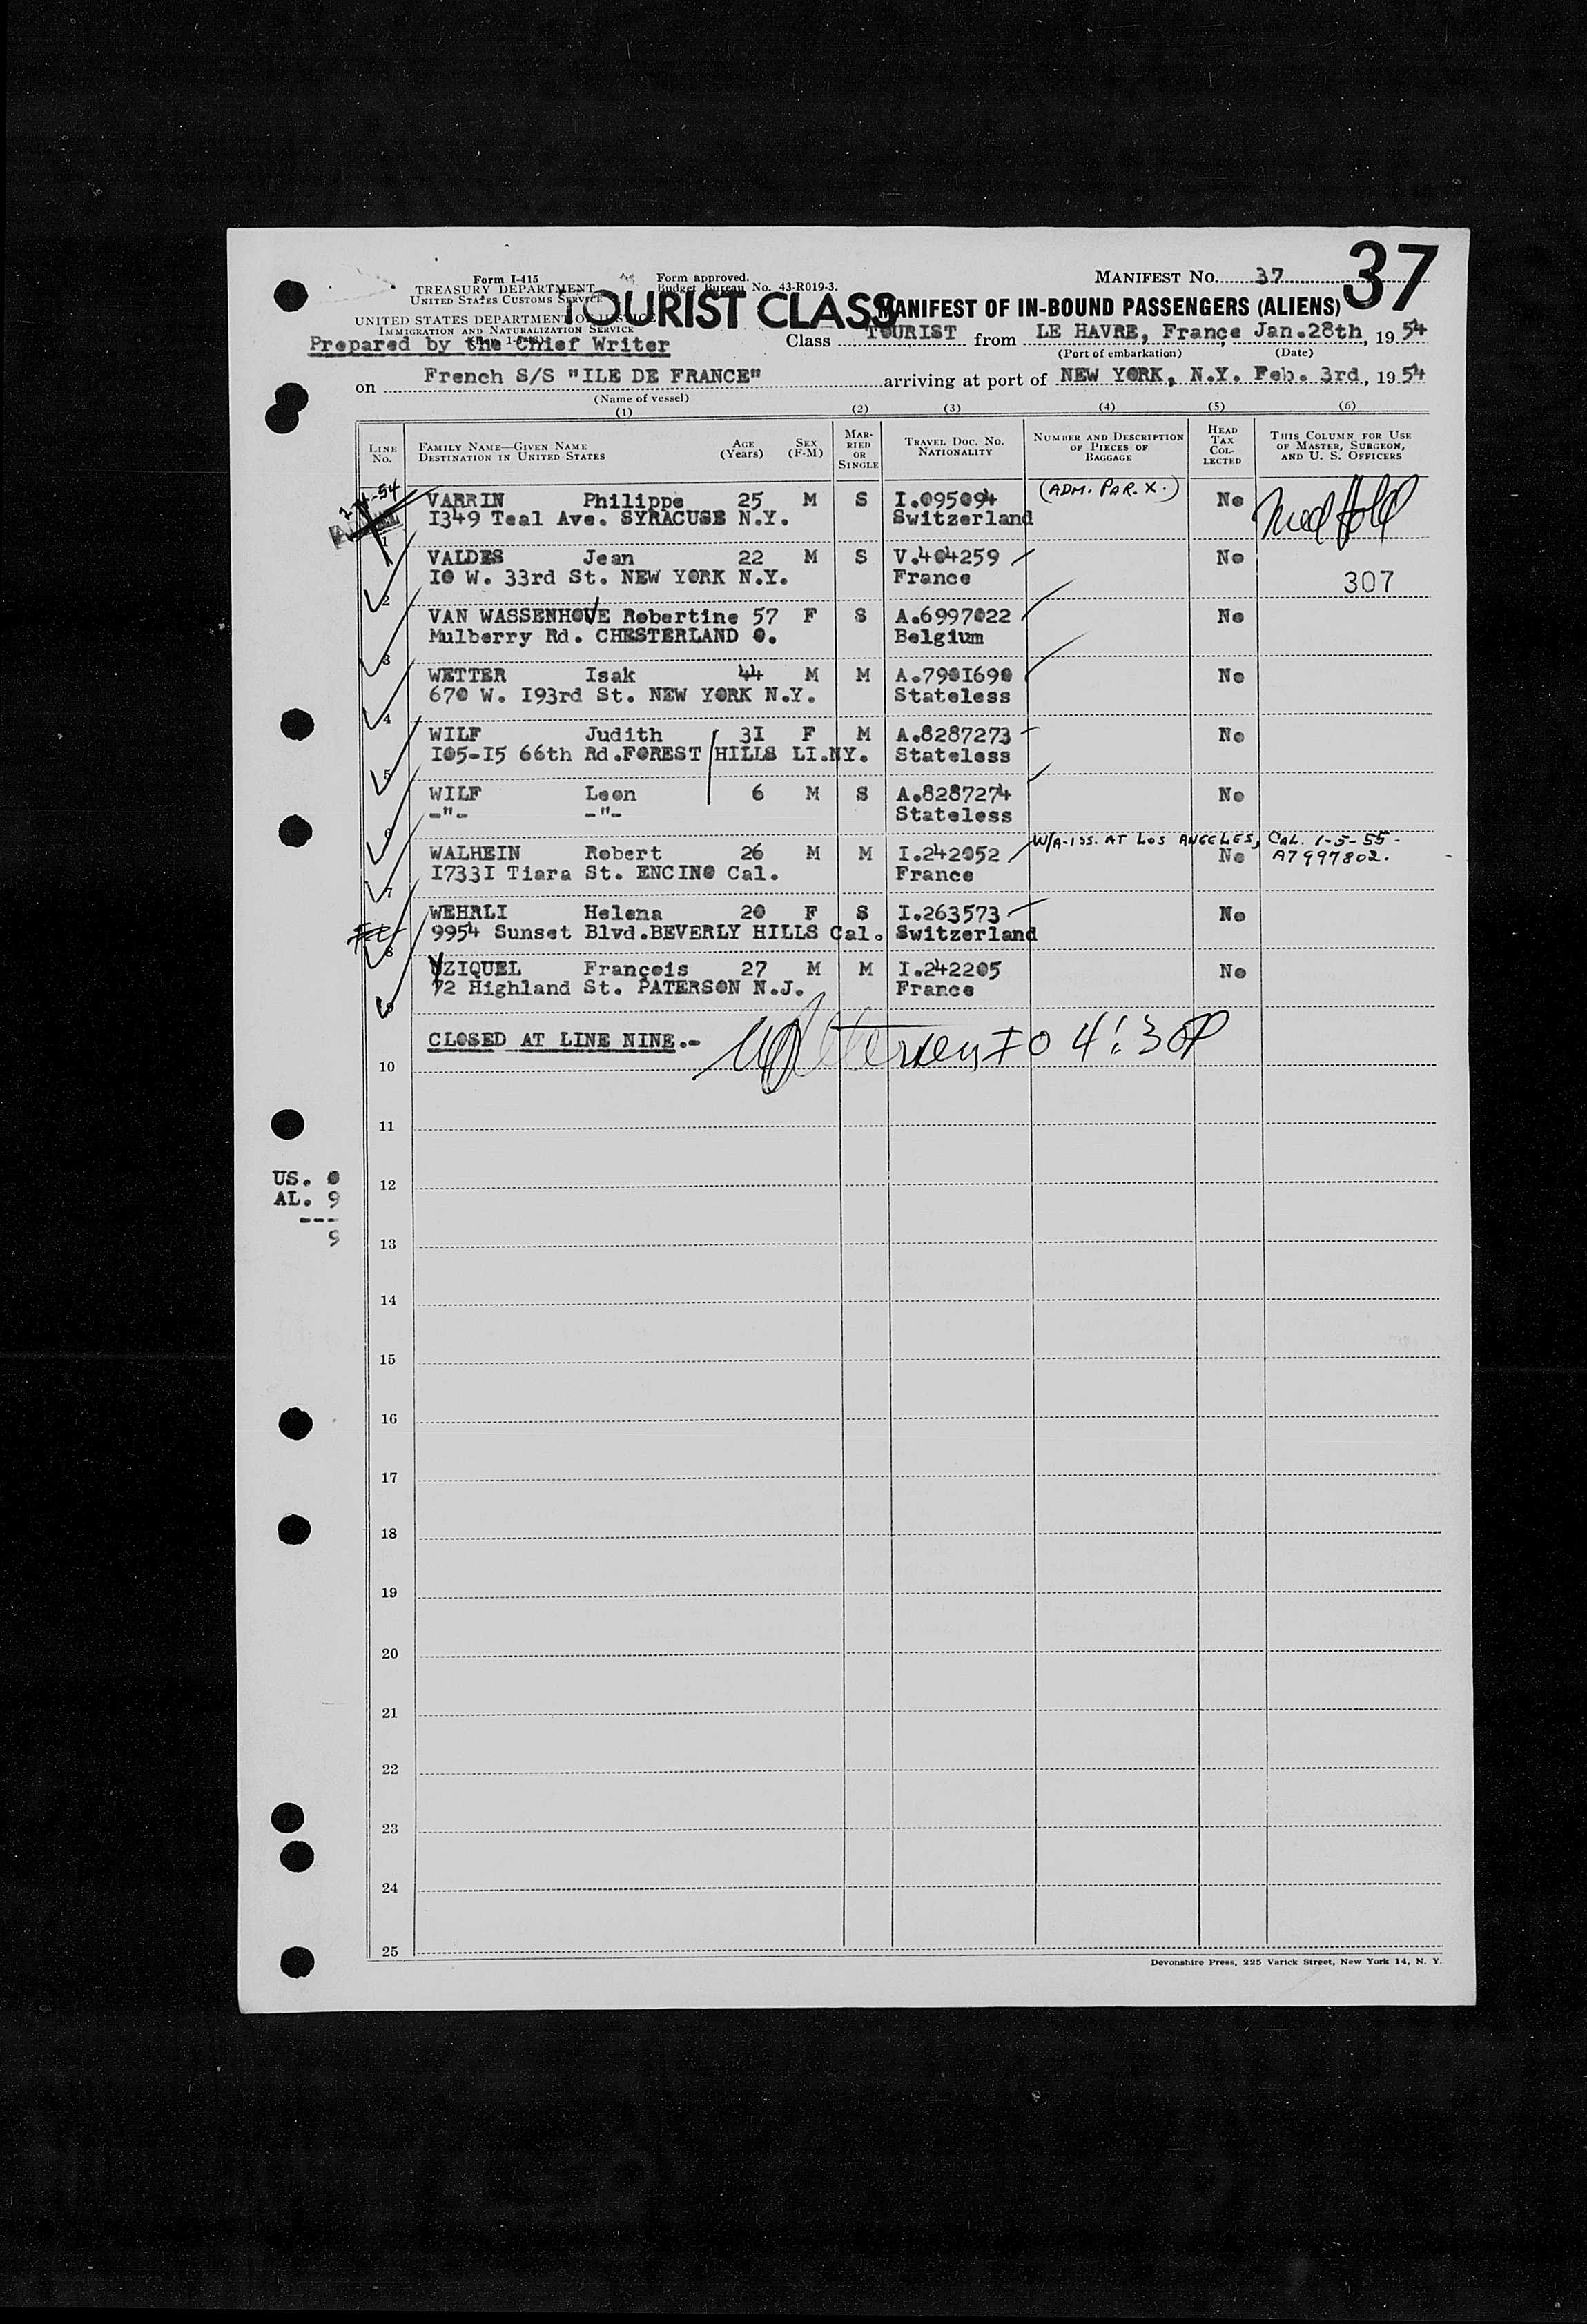 37
Form I-415
TREASURY DEPARTMENT
UNITED STATES CUSTOMS SERVICE
Form approved.
Budget Bureau No. 43-R019-3.
MANIFEST No. 37
TOURIST CLASS
MANIFEST OF IN-BOUND PASSENGERS (ALIENS)
UNITED STATES DEPARTMENT OF JUSTICE
IMMIGRATION AND NATURALIZATION SERVICE
Prepared by the Chief Writer
Class TOURIST from LE HAVRE, France Jan.28th, 1954
(Port of embarkation) (Date)
on French S/S "ILE DE FRANCE" arriving at port of NEW YORK, N.Y. Feb. 3rd, 1954
(Name of vessel)
(1) (2) (3) (4) (5) (6)
LINE No. FAMILY NAME—GIVEN NAME DESTINATION IN UNITED STATES AGE (Years) SEX (F-M) MARRIED OR SINGLE TRAVEL DOC. NO. NATIONALITY NUMBER AND DESCRIPTION OF PIECES OF BAGGAGE HEAD TAX COLLECTED THIS COLUMN FOR USE OF MASTER, SURGEON, AND U. S. OFFICERS
VARRIN Philippe 25 M S I.095094 (ADM. PAR. X.) No Med Hold
1 I349 Teal Ave. SYRACUSE N.Y. Switzerland
VALDES Jean 22 M S V.404259 No
2 I0 W. 33rd St. NEW YORK N.Y. France 307
VAN WASSENHOVE Robertine 57 F S A.6997022 No
3 Mulberry Rd. CHESTERLAND O. Belgium
WETTER Isak 44 M M A.790I690 No
4 670 W. I93rd St. NEW YORK N.Y. Stateless
WILF Judith 3I F M A.8287273 No
5 I05-I5 66th Rd.FOREST HILLS LI.NY. Stateless
WILF Leon 6 M S A.8287274 No
6 -"- -"- Stateless
W/A-ISS. AT LOS ANGELES, CAL. 1-5-55-
WALHEIN Robert 26 M M I.242052 No A7997802.
7 I733I Tiara St. ENCINO Cal. France
WEHRLI Helena 20 F S I.263573 No
8 9954 Sunset Blvd.BEVERLY HILLS Cal. Switzerland
YZIQUEL François 27 M M I.242205 No
9 72 Highland St. PATERSON N.J. France
CLOSED AT LINE NINE.-
10
11
US. 0
12
AL. 9
---
9
13
14
15
16
17
18
19
20
21
22
23
24
25
Devonshire Press, 225 Varick Street, New York 14, N. Y.